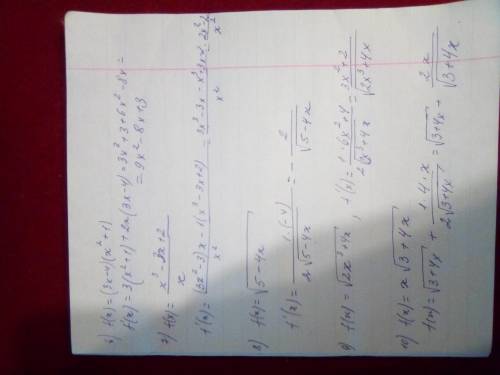 6) f(x)=(3x-4)(x²+1)
f'(x)=3(x²+1)+2x(3x-4)=3x²+3+6x²-8x=
=9x²-8x+3
7) f(x)= (x³-3x+2)/x
f'(x)= ((3x²-3)x-1(x³-3x+2))/x² = (3x³-3x-x³+3x-2)/x² = (2x³-2)/x²
8) f(x)=√(5-4x)
f'(x)= (1·(-4))/(2√(5-4x)) = -2/√(5-4x)
9) f(x)=√(2x³+4x), f'(x)= (1·6x²+4)/(2√(2x³+4x)) = (3x²+2)/√(2x³+4x)
10) f(x)=x√(3+4x)
f(x)=√(3+4x) + (1·4·x)/(2√(3+4x)) = √(3+4x) + 2x/√(3+4x)